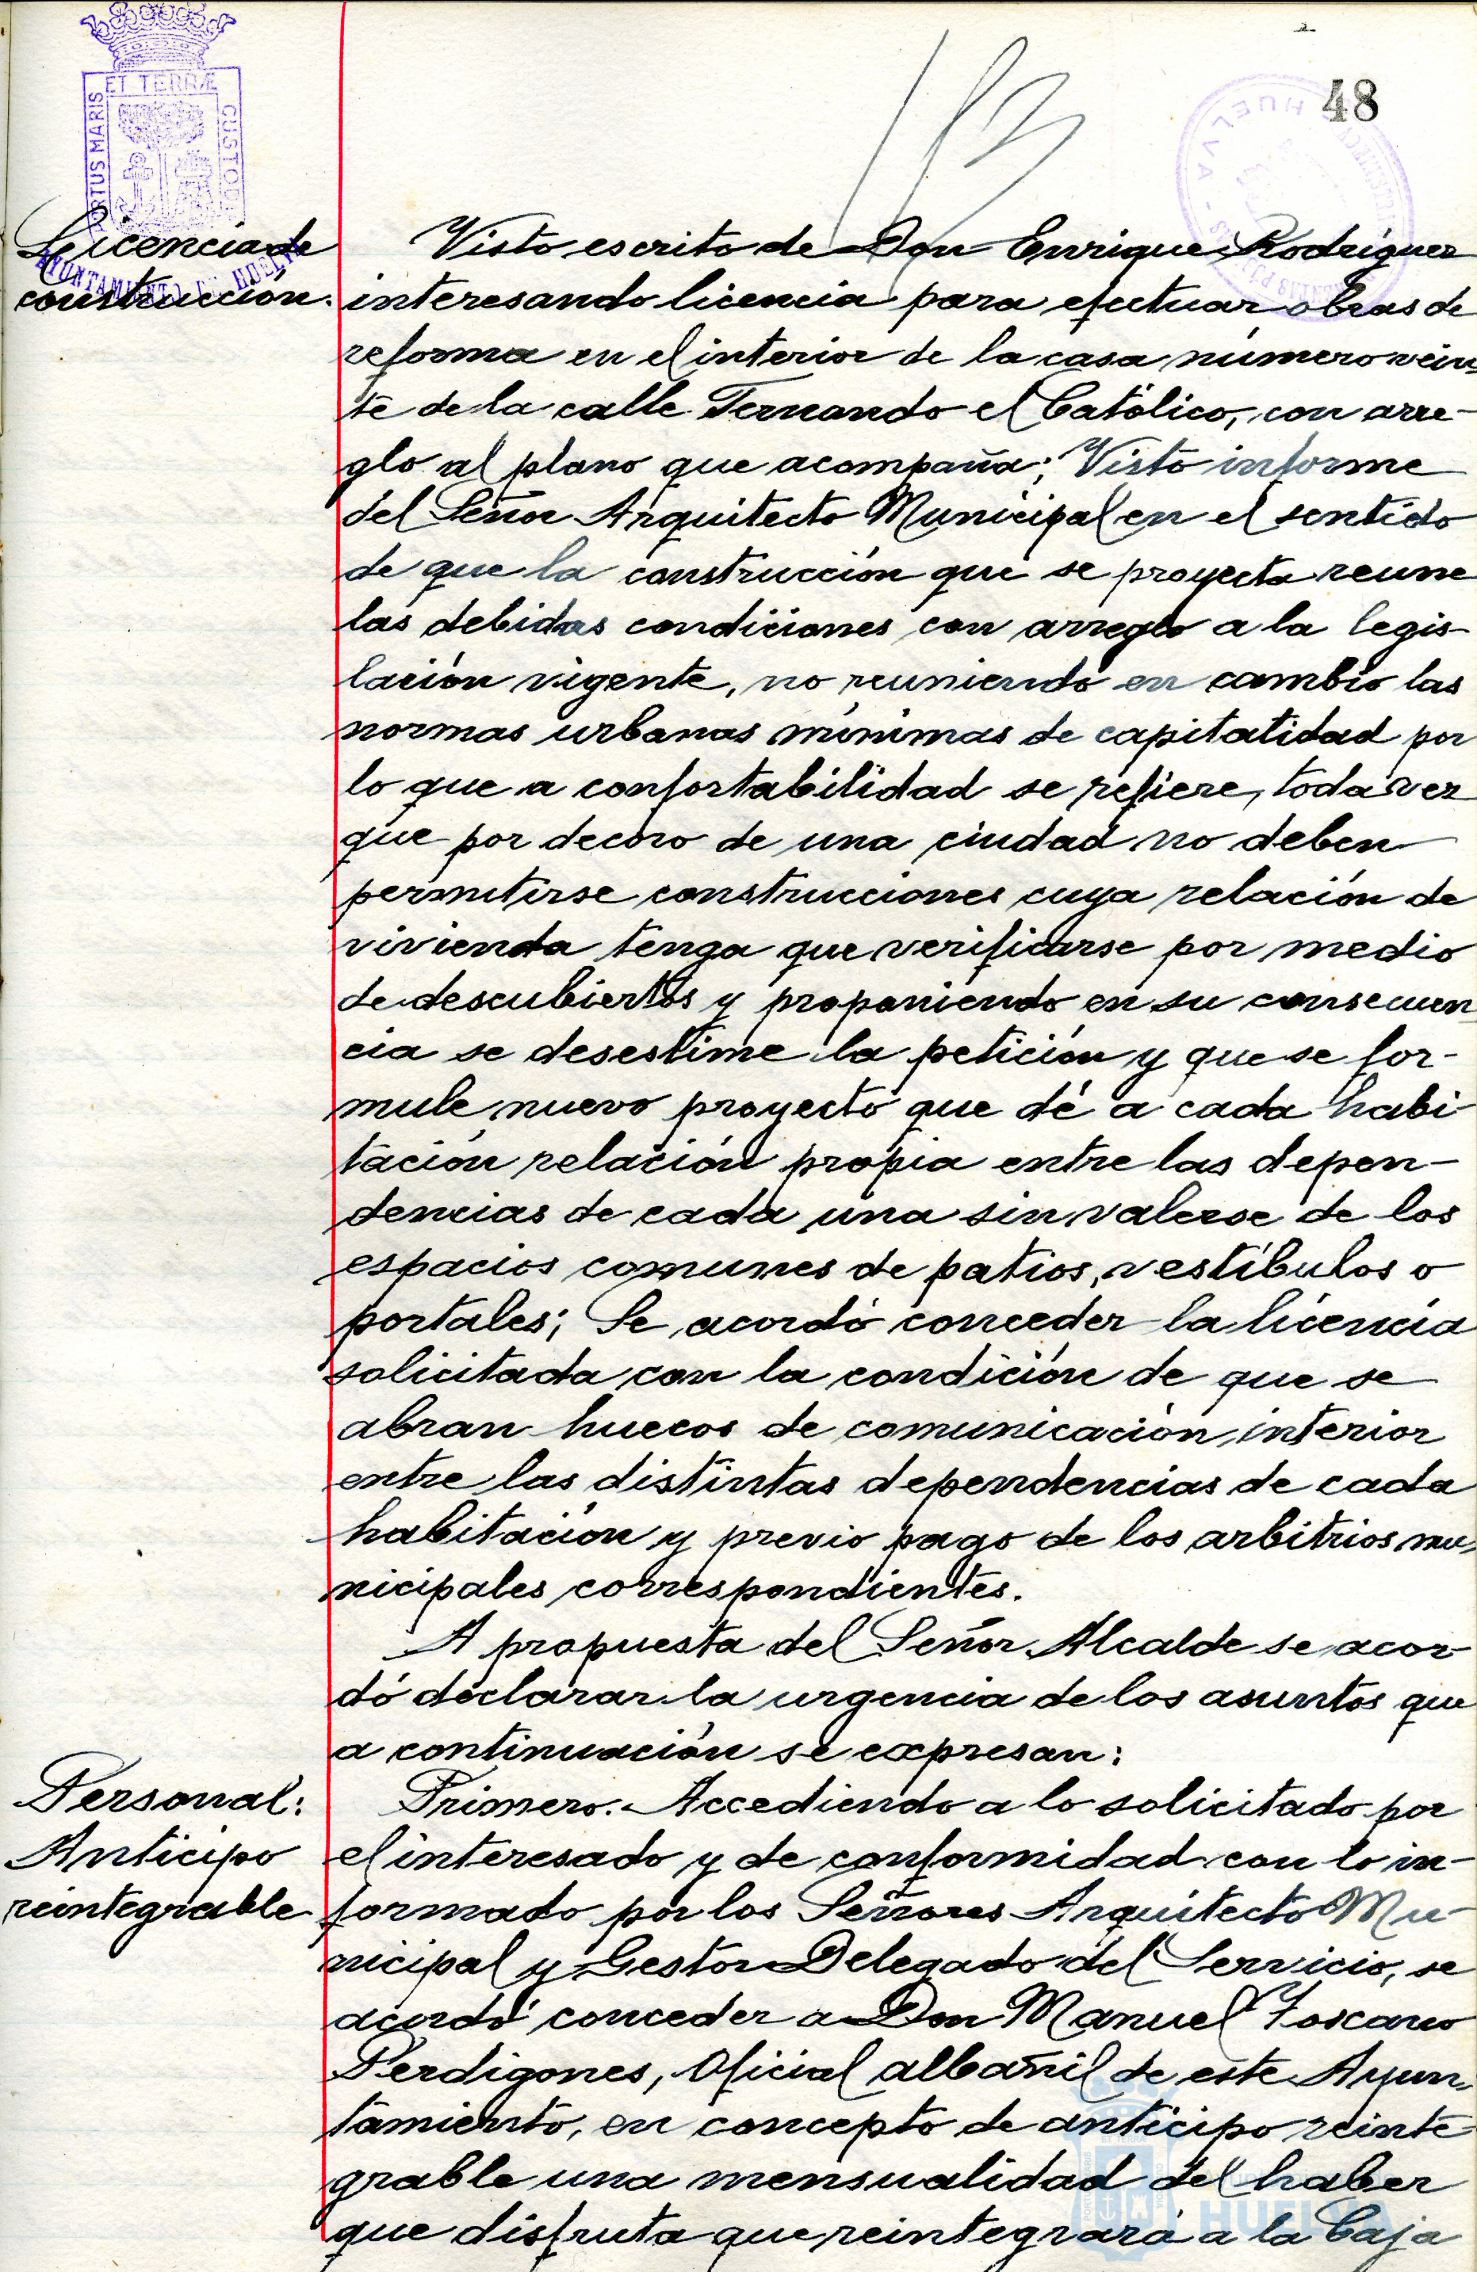 48
ET TERRÆ
PORTUS MARIS
CUSTODI
AYUNTAMIENTO DE HUELVA
HUELVA
Licencia de
construcción.
Visto escrito de Don Enrique Rodríguez
interesando licencia para efectuar obras de
reforma en el interior de la casa número vein-
te de la calle Fernando el Católico, con arre-
glo al plano que acompaña; Visto informe
del Señor Arquitecto Municipal en el sentido
de que la construcción que se proyecta reune
las debidas condiciones con arreglo a la legis-
lación vigente, no reuniendo en cambio las
normas urbanas mínimas de capitalidad por
lo que a confortabilidad se refiere, toda vez
que por decoro de una ciudad no deben
permitirse construcciones cuya relación de
vivienda tenga que verificarse por medio
de descubiertos y proponiendo en su consecuen-
cia se desestime la petición y que se for-
mule nuevo proyecto que dé a cada habi-
tación relación propia entre las depen-
dencias de cada una sin valerse de los
espacios comunes de patios, vestíbulos o
portales; Se acordó conceder la licencia
solicitada con la condición de que se
abran huecos de comunicación interior
entre las distintas dependencias de cada
habitación y previo pago de los arbitrios mu-
nicipales correspondientes.
A propuesta del Señor Alcalde se acor-
dó declarar la urgencia de los asuntos que
a continuación se expresan:
Personal:
Anticipo
reintegrable
Primero.- Accediendo a lo solicitado por
el interesado y de conformidad con lo in-
formado por los Señores Arquitecto Mu-
nicipal y Gestor Delegado del Servicio, se
acordó conceder a Don Manuel Toscano
Perdigones, Oficial albañil de este Ayun-
tamiento, en concepto de anticipo reinte-
grable una mensualidad del haber
que disfruta que reintegrará a la Caja
HUELVA